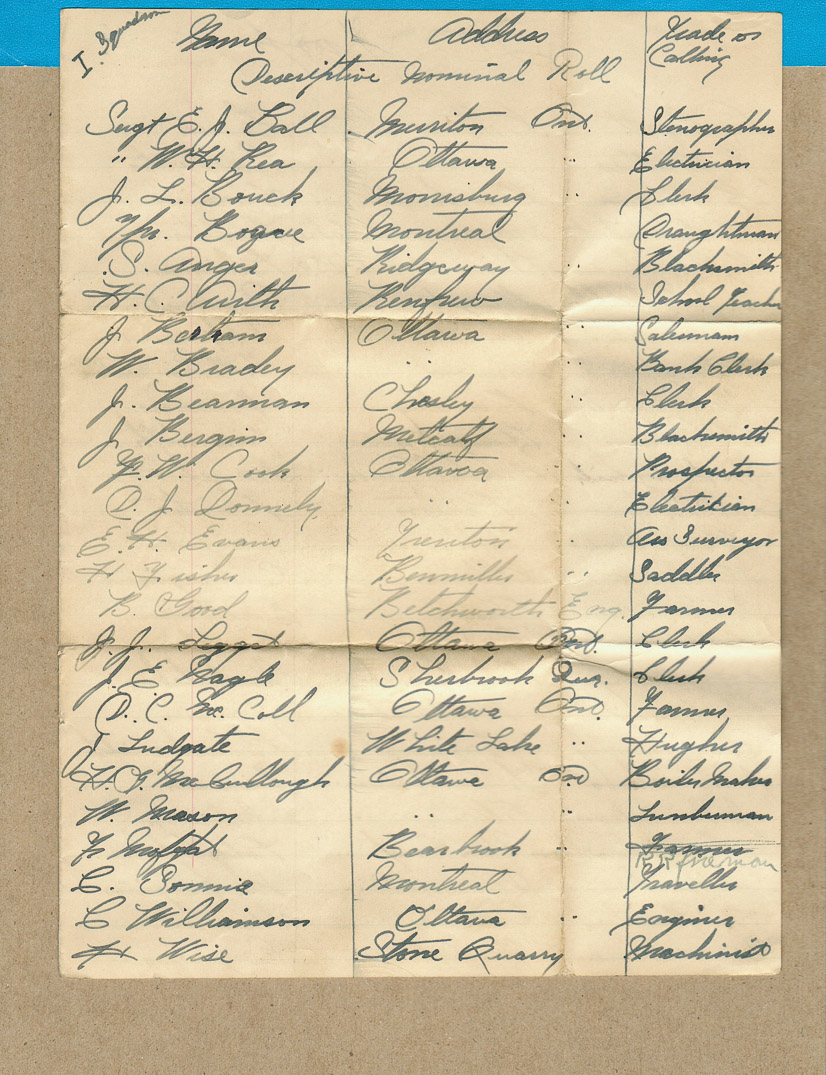 I. Squadron
Name Address Trade or Calling
Descriptive Nominal Roll
Sergt E. J. Ball Merriton Ont. Stenographer
" W. H. Rea Ottawa Electrician
J. L. Bouck Morrisburg " Clerk
Bogue Montreal Draughtman
S. Anger Ridgeway " Blacksmith
H. C. Airth Renfrew " School Teacher
J. Bertram Ottawa " Salesman
W. Bradey " " Bank Clerk
J. Bearman Chesley " Clerk
J. Bergin Metcalf " Blacksmith
F. W. Cook Ottawa " Prospector
D. J. Donnely " " Electrician
E. H. Evans Trenton " Ass Surveyor
H Fisher Benmiller " Saddler
B. Good Betchworth Eng. Farmer
J. J. Legget Ottawa Ont. Clerk
J. E Nagle Sherbrook Que. Clerk
D. C. Mc Coll Ottawa Ont. Farmer
J Ludgate White Lake "
H. J. McCullough Ottawa Ont Boiler Maker
W. Mason " " Lumberman
F. Moffat Bearbrook " Farmer
RR fireman
C. Montreal Traveller
C Williamson Ottawa " Enginer
H Wise Stone Quarry " Machinist